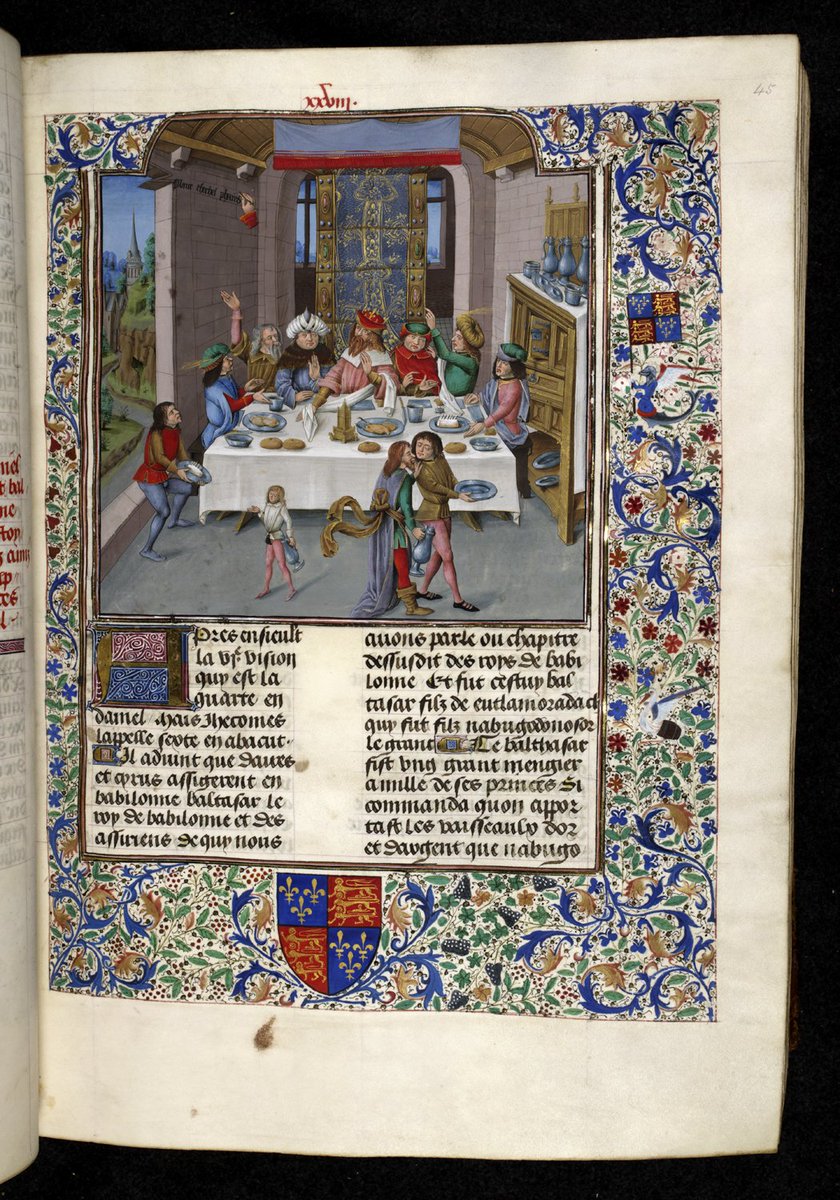 45
xxviii.
Mane thechel phares
Apres ensieult
la vje vision
quy est la
quarte en
daniel. Mais Jherome
lappelle sexte en abacut.
Il aduint que daires
et cyrus assigerent en
babilonne baltasar le
roy de babilonne et des
assiriens de quy nous
auons parle ou chapitre
dessusdit des roys de babi
lonne Et fut cestuy bal
tasar filz de
quy fut filz nabugodonosor
le grant Ce balthasar
fist vng grant mengier
a mille de ses princes Si
commanda quon appor
tast les vaisseaulx dor
et dargent que nabugo